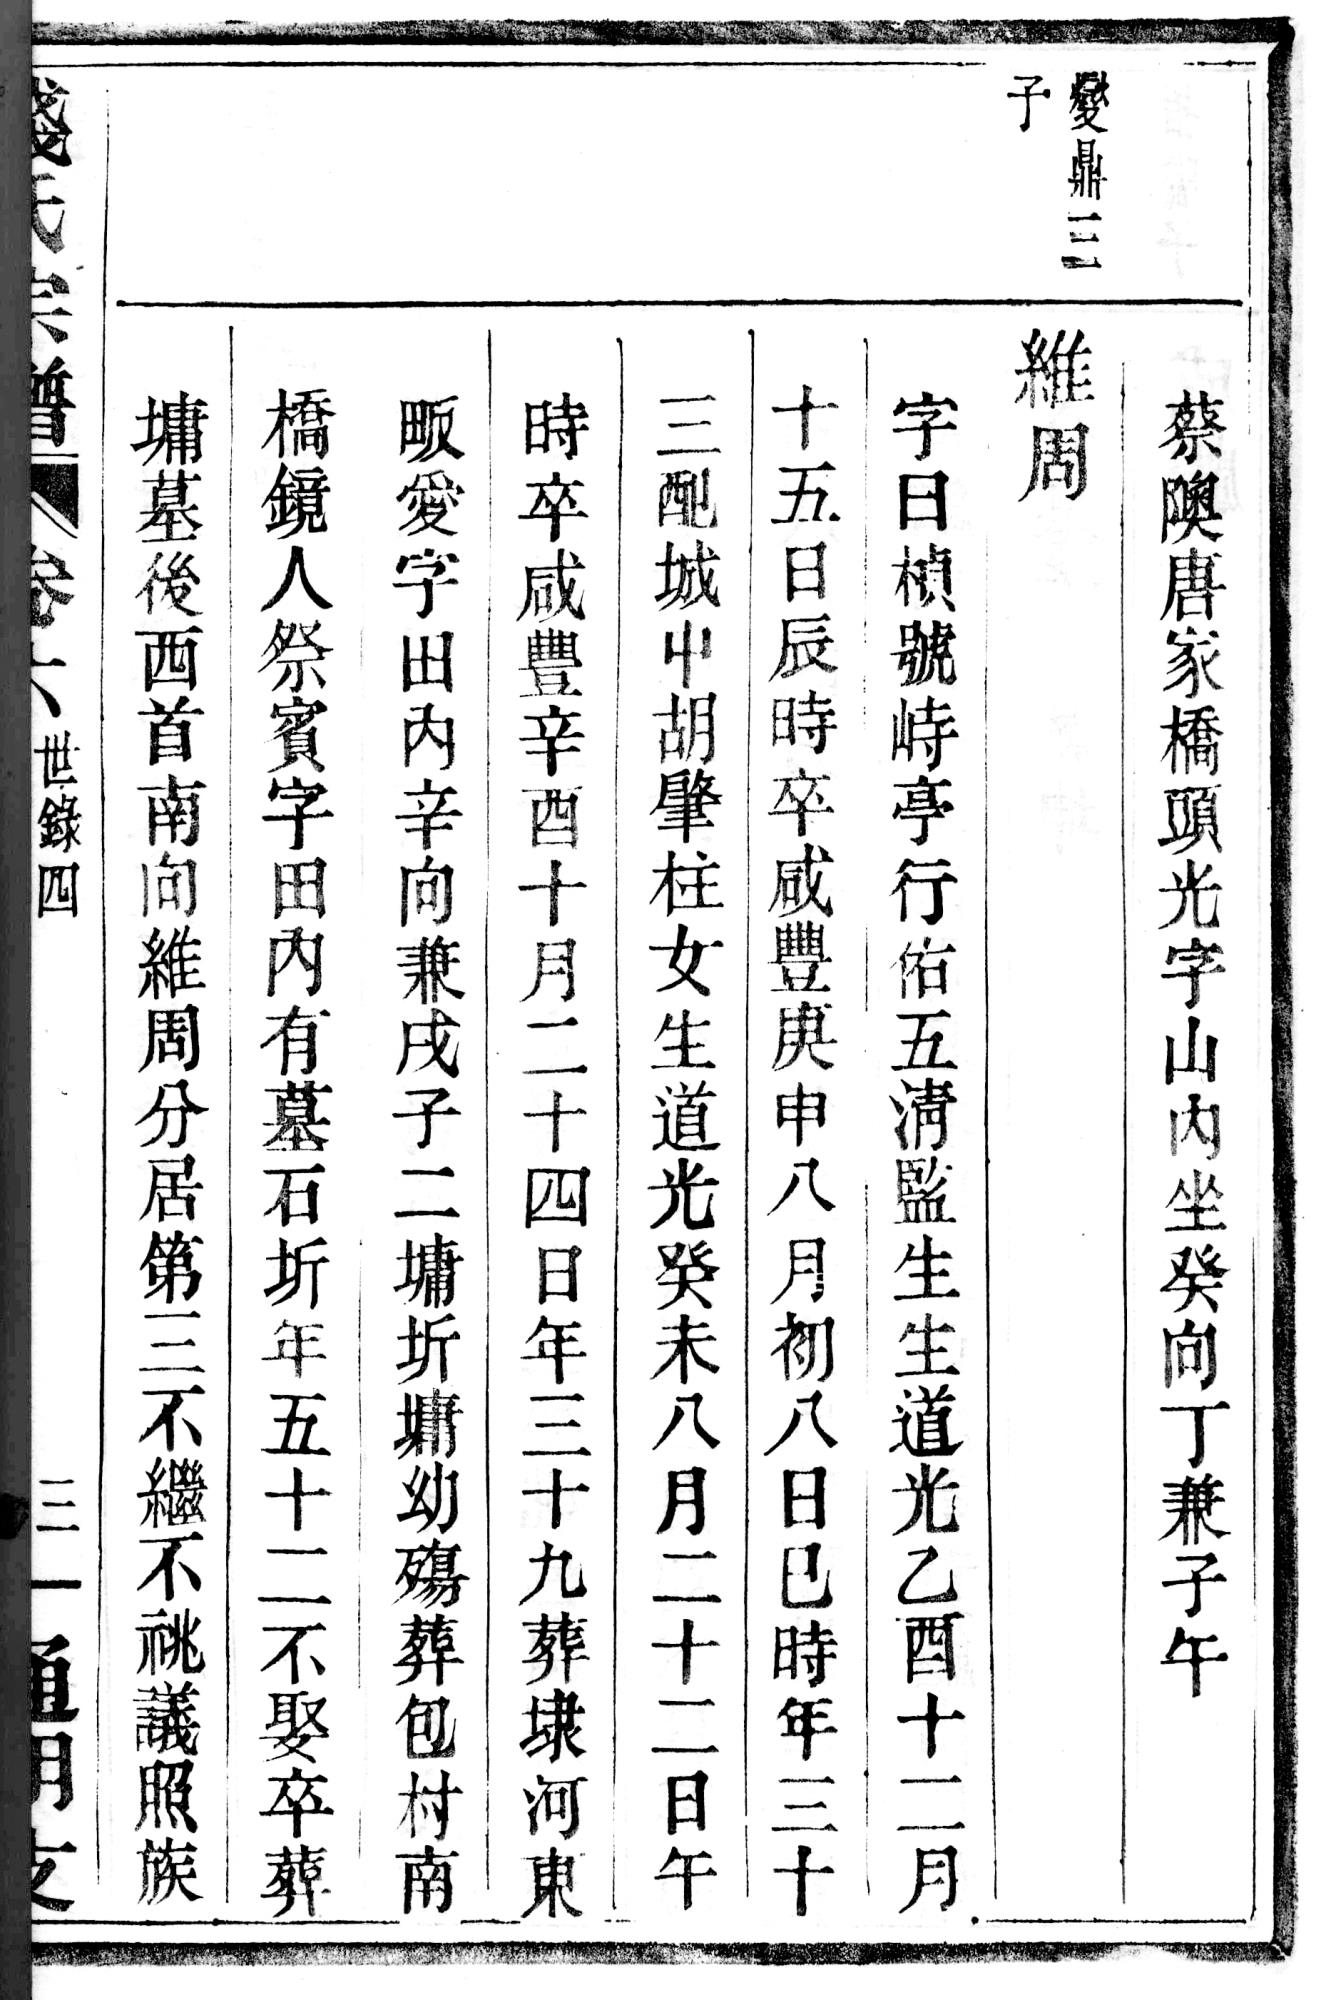 蔡隩唐家橋頭光字山內坐癸向丁兼子午
燮鼎三
子
維周
字曰楨號峙亭行佑五淸監生生道光乙酉十二月
十五日辰時卒咸豐庚申八月初八日巳時年三十
三配城中胡肇柱女生道光癸未八月二十二日午
時卒咸豐辛酉十月二十四日年三十九葬埭河東
畈愛字田內辛向兼戌子二墉圻墉幼殤葬包村南
橋鏡人祭賓字田內有墓石圻年五十二不娶卒葬
墉墓後西首南向維周分居第三不繼不祧議照族
錢氏宗譜 卷十六 世錄四 三一 通明支